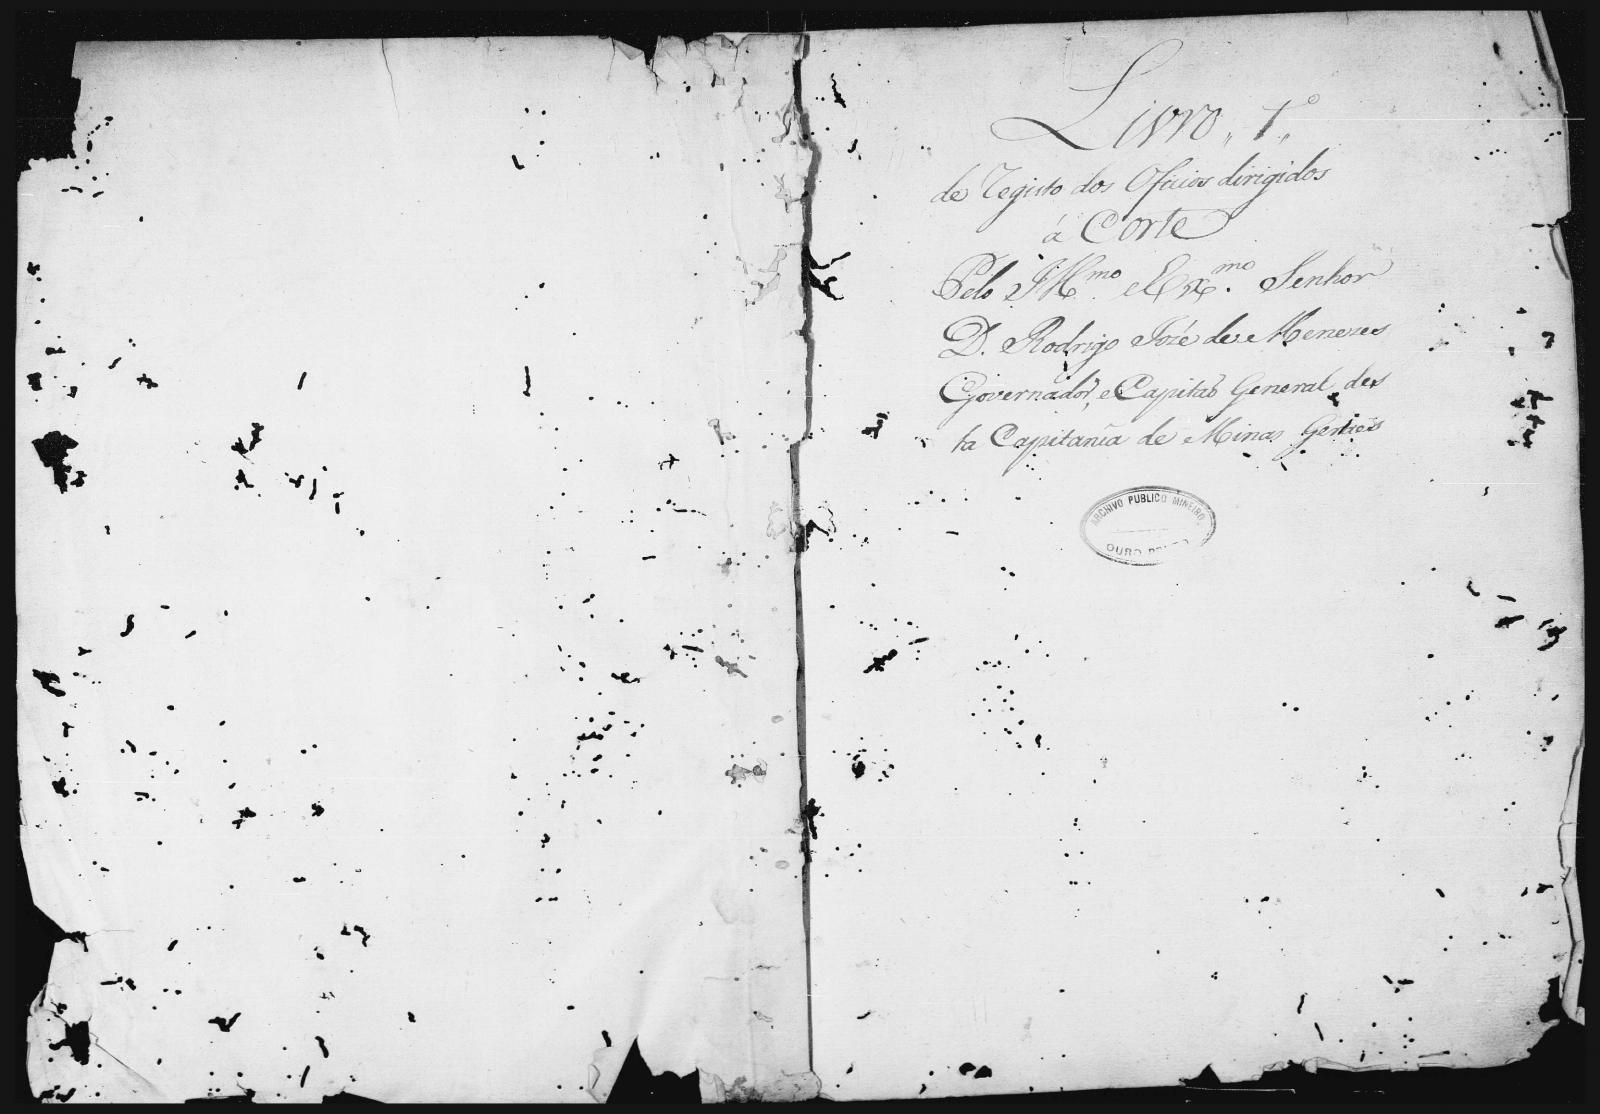 Livro,, 1º,,
de Registo dos Oficios dirigidos
á Corte
Pelo Ill.mo e Ex.mo Senhor
D. Rodrigo Jozé de Menezes
Governador, e Capitaõ General des
ta Capitanîa de Minas Geraes
ARCHIVO PUBLICO MINEIRO
OURO PRETO